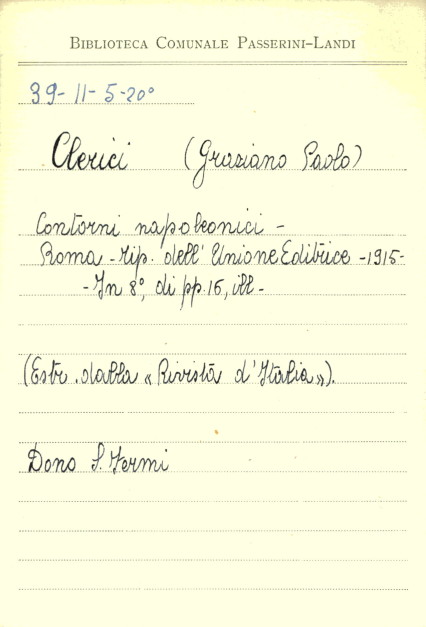 BIBLIOTECA COMUNALE PASSERINI-LANDI
39-11-5-20°
Clerici (Graziano Paolo)
Contorni napoleonici -
Roma - tip. dell' Unione Editrice - 1915 -
- In 8°, di pp. 15, ill -
(Estr. dalla « Rivista d'Italia »).
Dono S. Fermi